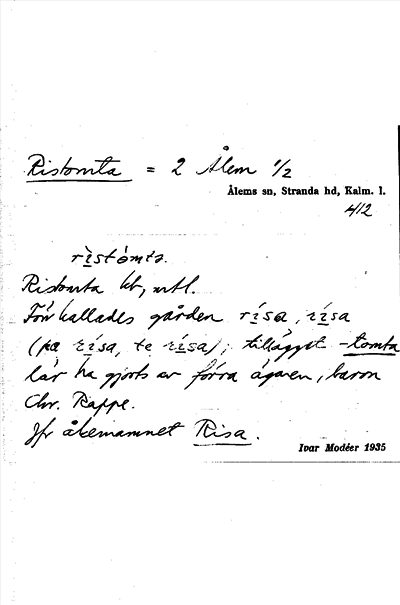 Ristomta = 2 Ålem 1/2
Ålems sn, Stranda hd, Kalm. l.
4/12
rìstómta.
Ristomta kb, mtl.
Förr kallades gården rísa, rísa
(pa rísa, te rísa); tillägget -tomta
lär ha gjorts av förra ägaren, baron
Chr. Rappe.
Jfr åkernamnet Risa.
Ivar Modéer 1935